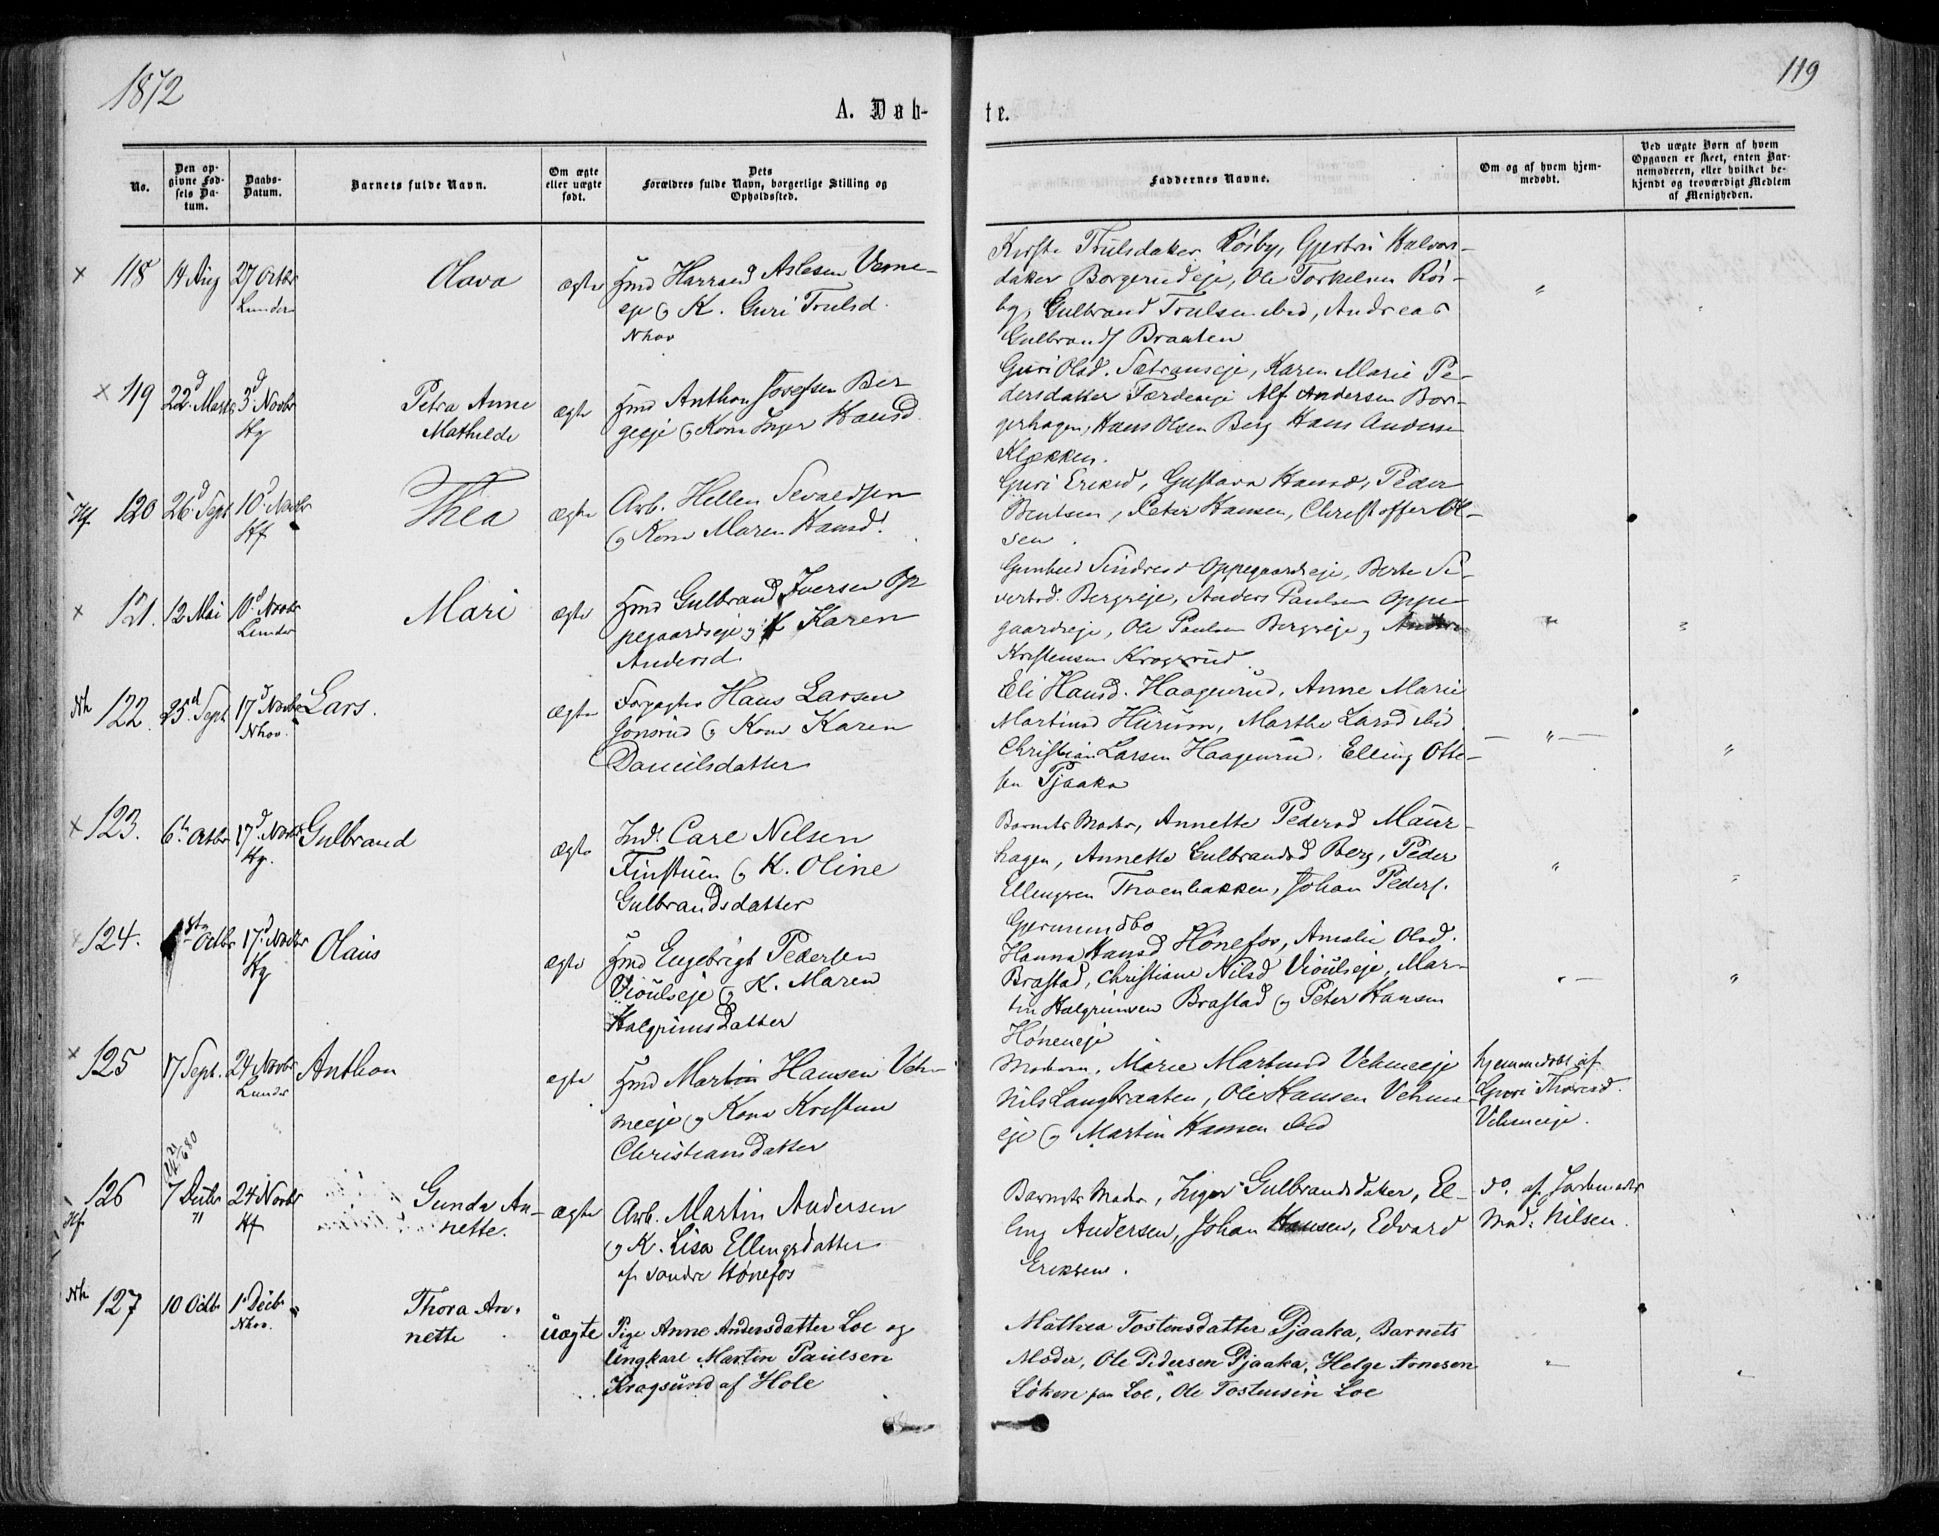 1872
119
A. Døb-
te.
No.
Den op-
givne Fød-
sels Da-
tum.
Daabs-
Datum.
Barnets fulde Navn.
Om ægte
eller uægte
født.
Dets
Forældres fulde Navn, borgerlige Stilling og
Opholdssted.
Faddernes Navne.
Om og af hvem hjem-
medøbt.
Ved uægte Børn af hvem
Opgaven er skeet, enten Bar-
nemoderen, eller hvilket be-
kjendt og troværdigt Medlem
af Menigheden.
× 118 14 Aug 27 Octbr Olava ægte Hmd Harrand Aslesen Veme-
Lunder
eje & K. Guri Trulsd.
Nhov
Trulsdaker Rösby, Gjertru Halvors-
daker Borgerudeje, Ole Torkelsen Rös-
by, Gulbrand Trulsen ibid, Andreas
Gulbrands Braaten
"
× 119 22d Marts 3d Novbr Petra Anne ægte Hmd Anthon Josefsen Ber
Hg Mathilde
geeje & Kone Inger Hansd
Guri Olsd. Sætranseje, Karen Marie Pe-
dersdatter Færdeneje Alf Andersen Bor-
gerhagen, Hans Olsen Berg Hans Anderse
Klækken.
Hf. 120 26d Sept 10d Novbr Thea ægte Arb. Hellen Sevaldsen
Hf
& Kone Maren Hansd.
Guri Eriksd, Gustava Hansd, Peder
Bentsen, Peter Hansen, Christoffer Ol-
sen.
× 121. 12 Mai 10d Novbr Mari ægte Hmd Gulbrand Iversen Op
Lunder
pegaardseje & K Karen
Andersd.
Gunhild Sindresd Oppegaardseje, Berte Si-
vertsd. Bergseje, Anders Paulsen Oppe
gaardseje, Ole Paulsen Bergseje, Anders
Kristensen Krogsrud.
" "
Nh 122. 25d Sept 17d Novbr Lars. ægte Forpagter Hans Larsen
Nhov.
Jonsrud & Kone Karen
Danielsdatter
Eli Hansd. Haagenrud, Anne Marie
Martinsd Hurum, Marthe Larsd ibid
Christian Larsen Haagenrud, Elling Otte-
sen Pjaaka
— " — "
× 123. 6te Octbr 17d Novbr Gulbrand ægte Indr Carl Nilsen
Hg.
Finstuen & K. Oline
Gulbrandsdatter
Barnets Moder, Annette Pedersd Maur-
hagen, Annette Gulbrandsd Berg, Peder
Ellingsen Thoenbakken, Johan Peders.
Gjermundbo
" "
× 124. 1ste Octbr 17d Novbr Olaus ægte Hmd Engebrigt Pedersen
Hg
Viöulseje & K. Maren
Halgrimsdatter
Hanna Hansd Hønefos, Amalie Olsd.
Brastad, Christiane Nilsd Viöulseje, Mar-
tin Halgrimsen Brastad & Peter Hansen
Høneneje
" — "
× 125 17 Sept. 24 Novbr Anthon ægte Hmd Martin Hansen Veh-
Lunder
meeje & Kone Kristine
Christiansdatter
Modern, Marie Martinsd Vehmeeje
Nils Langbraaten, Ole Hansen Vehme-
eje & Martin Hansen ibid
hjemmedøbt af
Guri Thoresd.
Vehmeeje.
126 7 24 Novbr Gunda An- ægte Arb. Martin Andersen
Hf. " Hf nette.
& K. Lisa Ellingsdatter
af søndre Hønefos
Barnets Moder, Inger Gulbrandsdaker, El-
ling Andersen, Johan Hansen, Edvard
Eriksen.
do. af Jordemoder
Mad: Nilsen.
Nh 127 10 Octbr 1 Decbr Thora An- uægte Pige Anne Andersdatter Loe og
Nhov. nette
ungkarl Martin Paulsen
Krogsund af Hole
Mathea Tostensdatter Pjaaka, Barnets
Moder, Ole Pedersen Pjaaka, Helge Arnesen
Löken paa Loe, Ole Tostensen Loe
" "